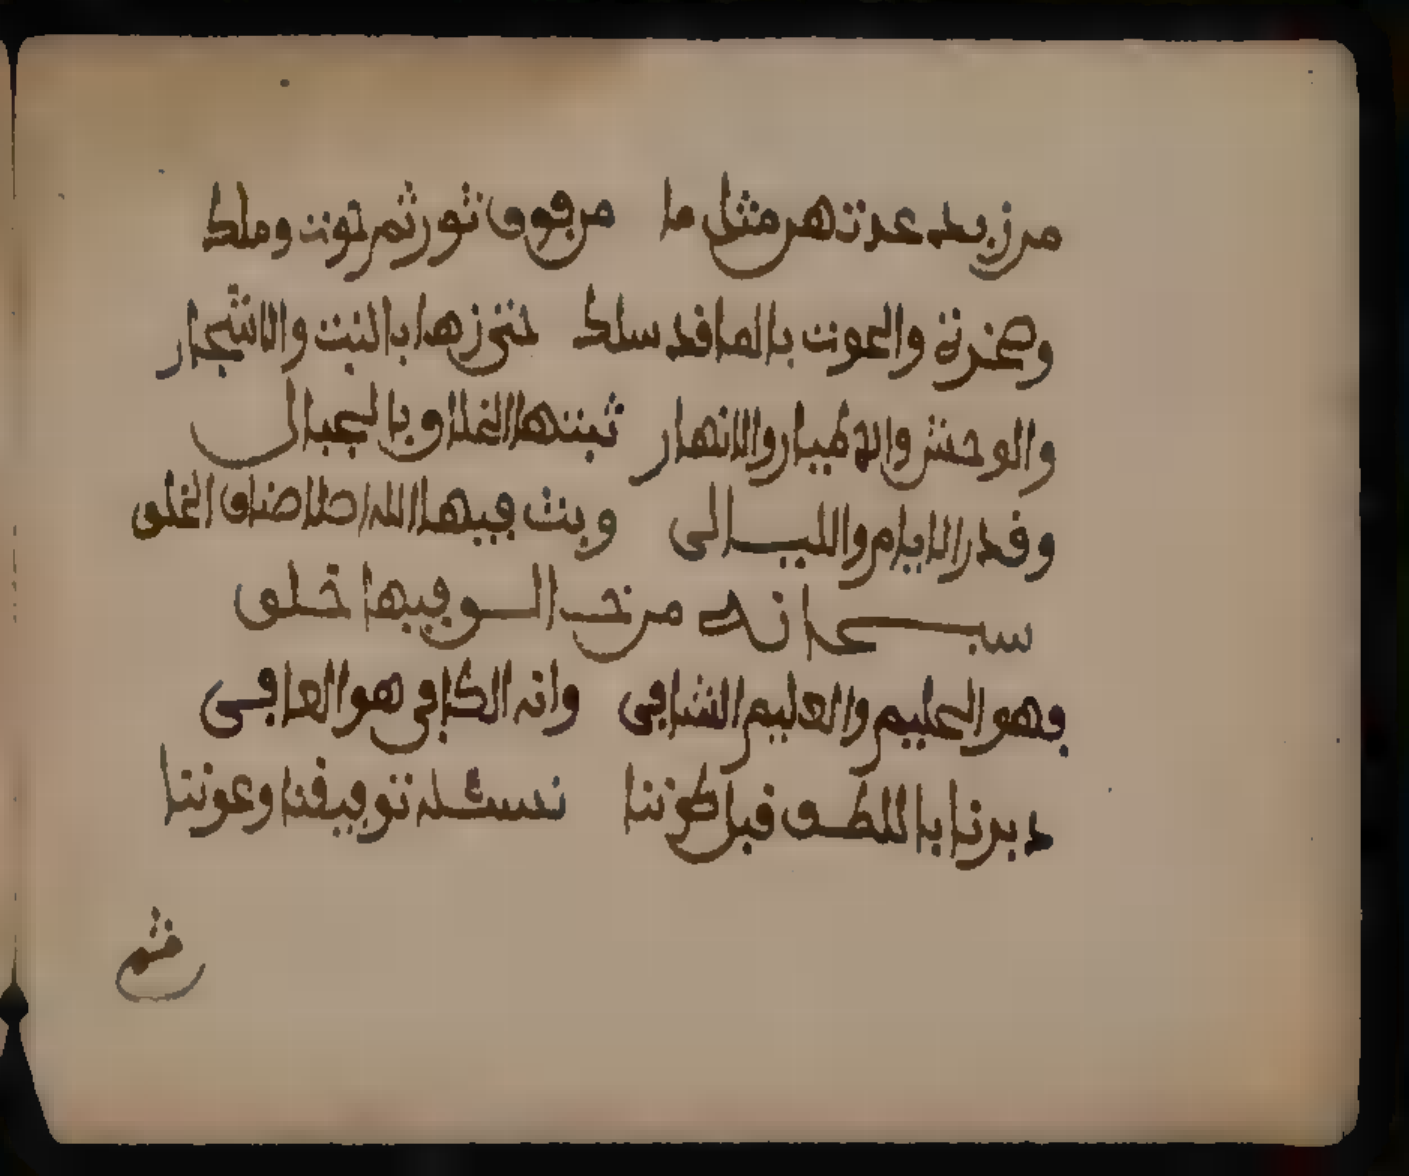 من زبد عدتهن مثل ما من فوق ثور ثم حوت وملك
وصخرة والحوت بالما قد سلك حتى زها بالنبت والاشجار
والوحش والاطيار والانهار ثبتها الخلاق بالجبال
وقدر الايام والليالي وبث فيها الله اصناف الخلق
سبحانه من فيها خلق
فهو الحليم والعليم الشافي وانه الكافي هو العافي
دبرنا باللطف قبل كوننا نسئله توفيقنا وعوننا